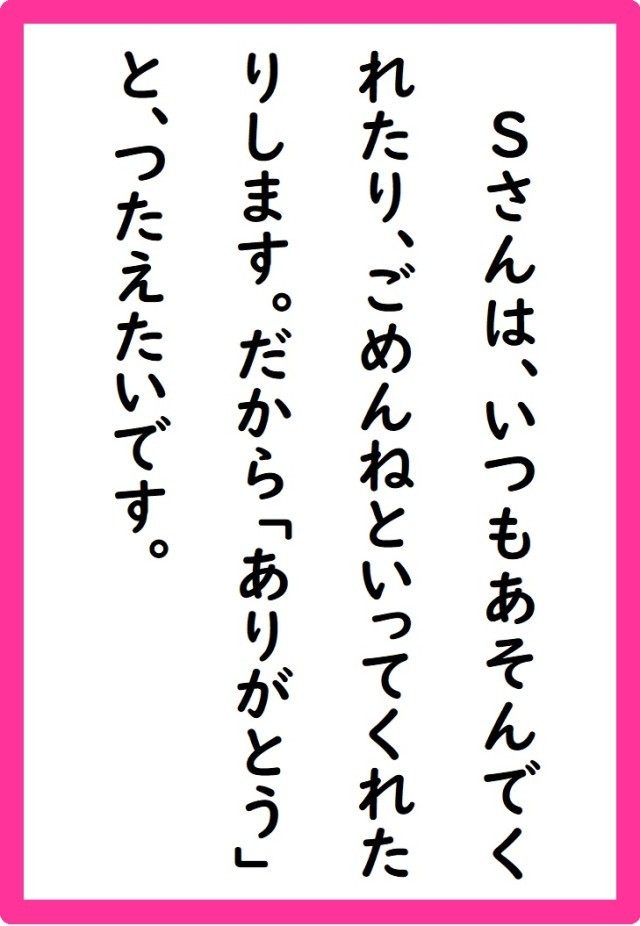 Sさんは、いつもあそんでく
れたり、ごめんねといってくれた
りします。だから「ありがとう」
と、つたえたいです。